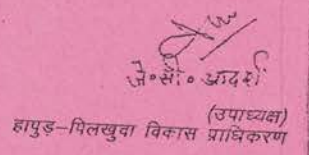 जे०सी० आदर्श
(उपाध्यक्ष)
हापुड़-पिलखुवा विकास प्राधिकरण